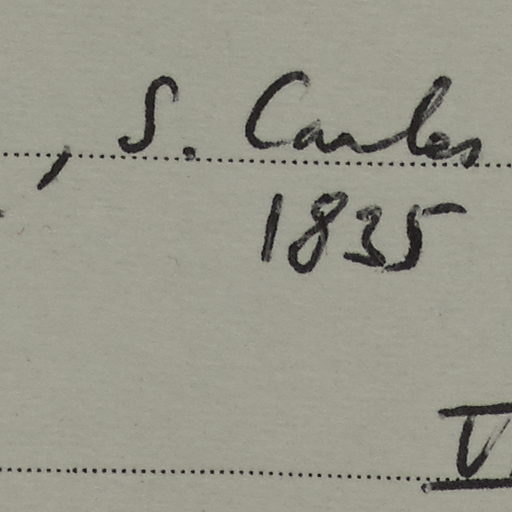 , S. Carlos
1835